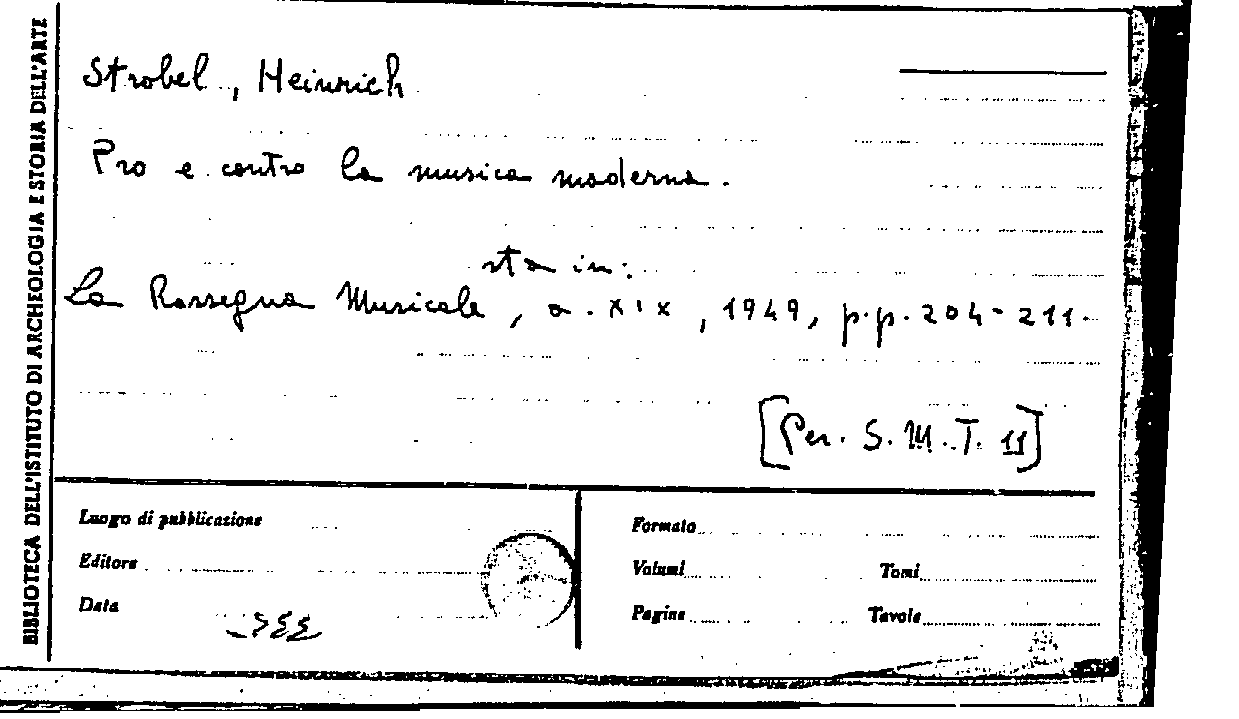 BIBLIOTECA DELL'ISTITUTO DI ARCHEOLOGIA E STORIA DELL'ARTE
Strobel, Heinrich
Pro e contro la musica moderna.
sta in:
La Rassegna Musicale, a. XIX, 1949, p.p. 204-211.
[Per. S. M. T. 11]
Luogo di pubblicazione
Editore
Data
Formato
Volumi Tomi
Pagine Tavole